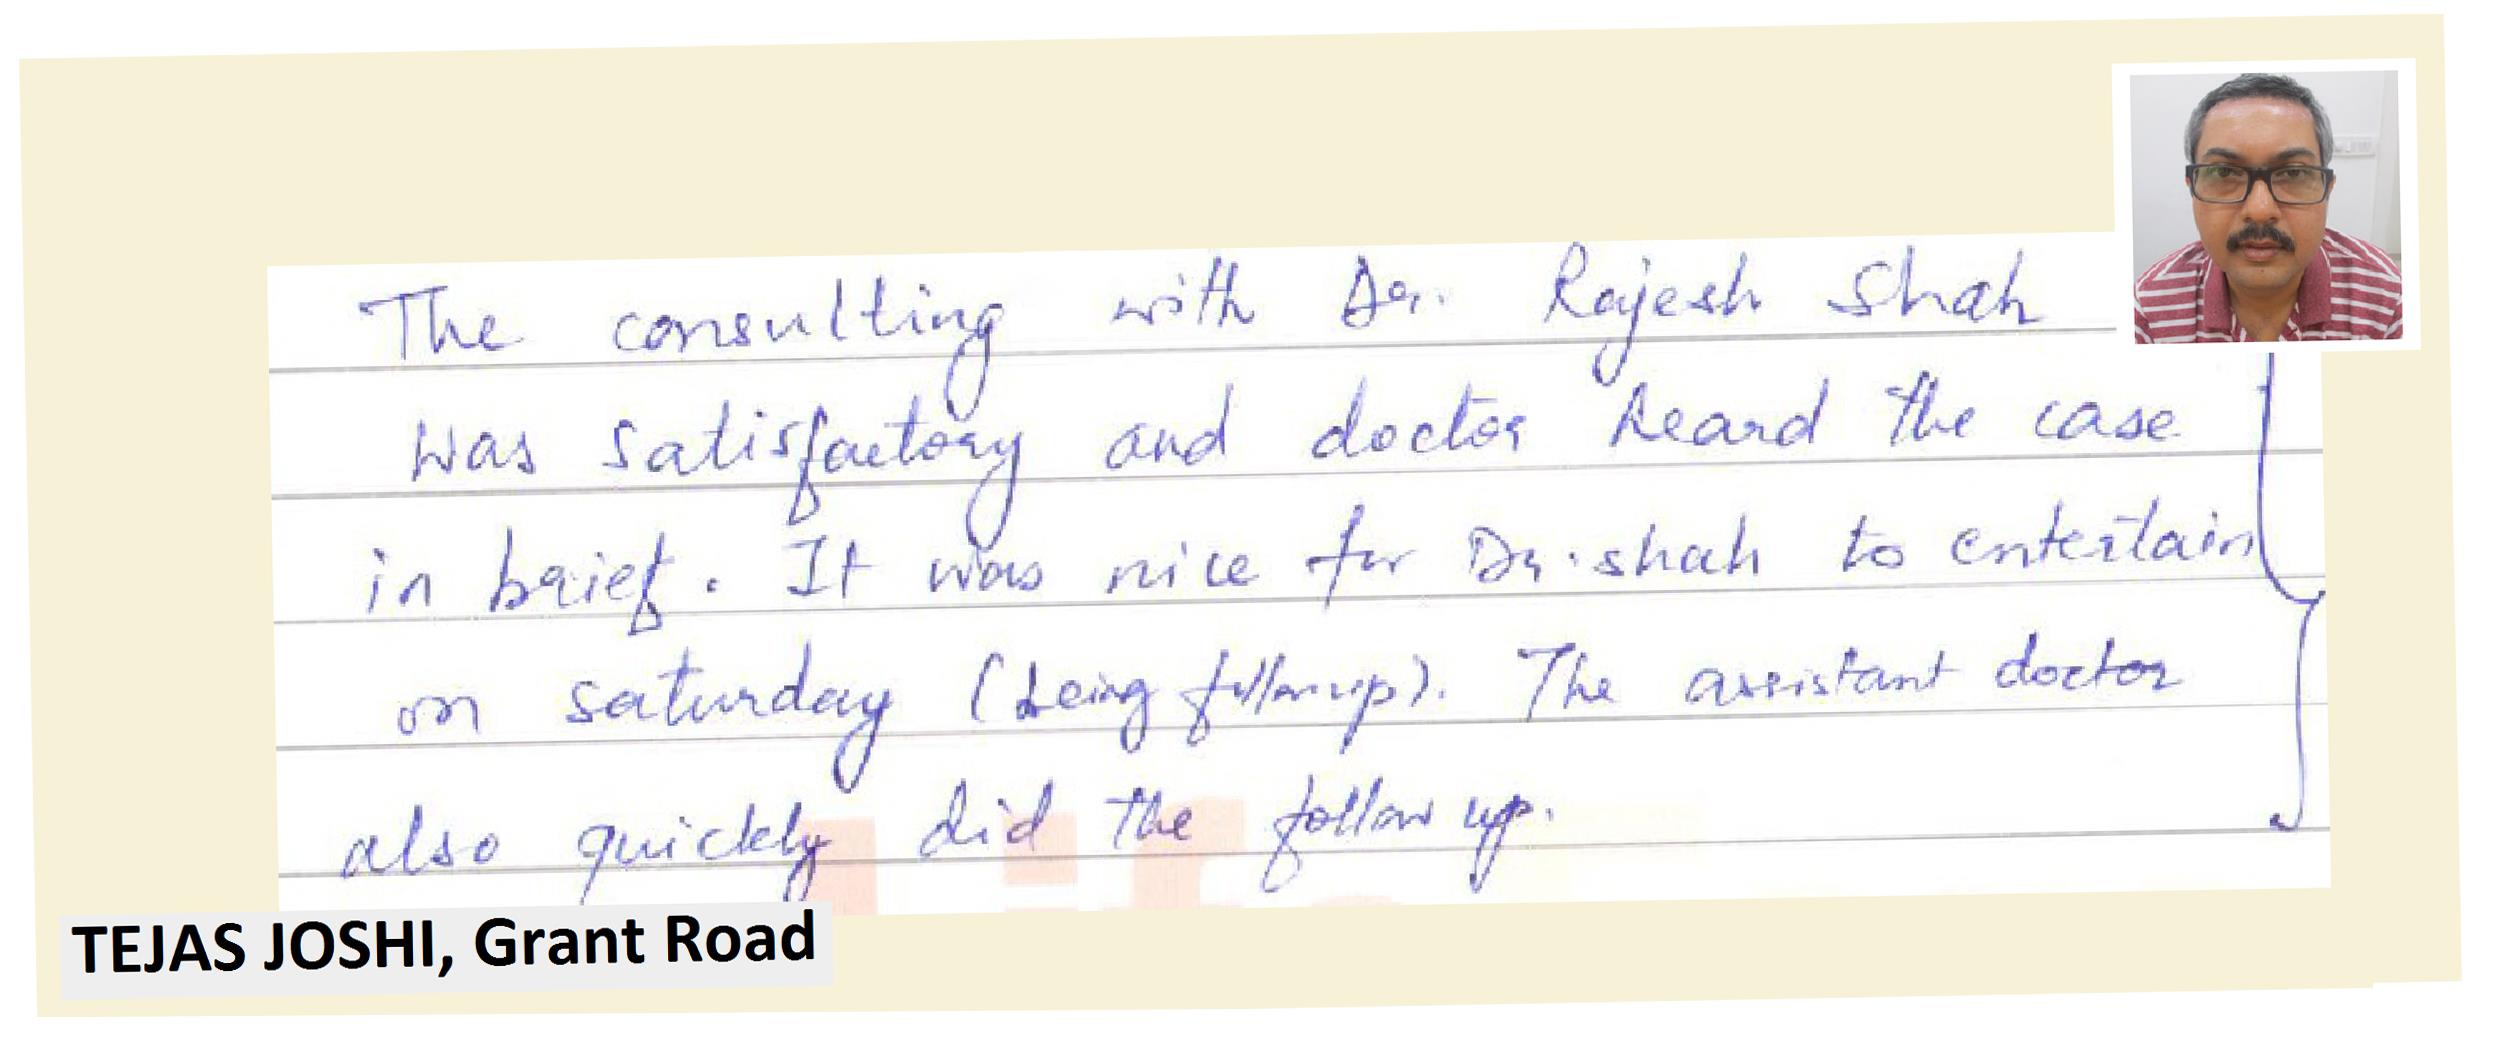 The consulting with Dr. Rajesh Shah
was satisfactory and doctor heard the case
in brief. It was nice for Dr. shah to entertain
on saturday (being followup). The assistant doctor
also quickly did the follow up.
TEJAS JOSHI, Grant Road